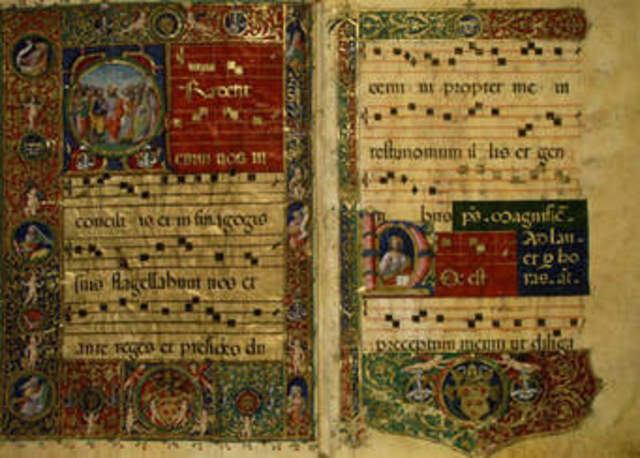 Radent
enim uos in
concili is et in sinagogis
suis flagellabunt uos et
ante reges et presides du
cemi ni propter me in
testimonium il lis et gen
bus ps. magnific.
Ad lau
et p ho
ras. añ.
Oc est
preceptum meum ut diliga